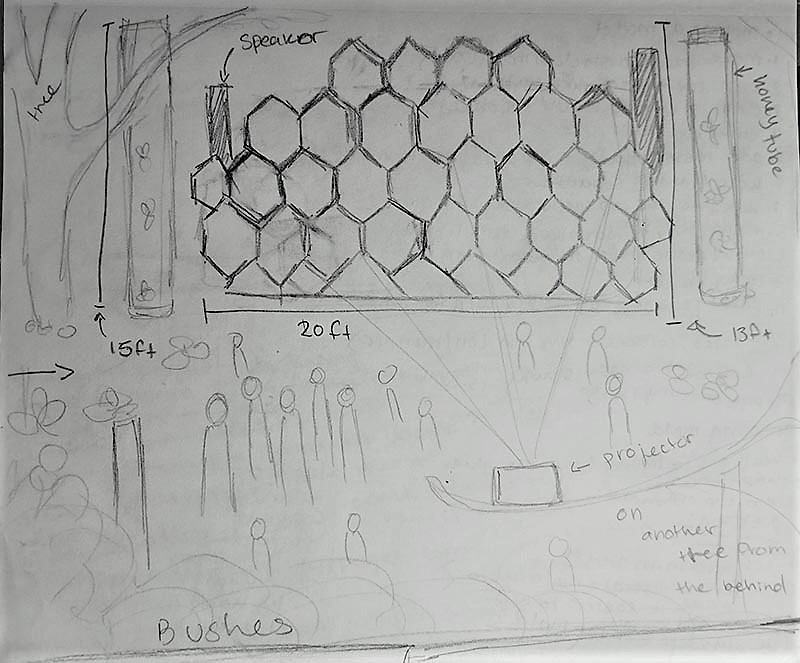 speaker
tree
honey tube
15ft
20ft
13ft
projector
on
another
tree from
the behind
Bushes